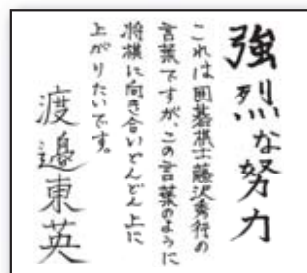 強烈な努力
これは囲碁棋士藤沢秀行の
言葉ですが、この言葉のように
将棋に向き合いどんどん上に
上がりたいです。
渡邉東英